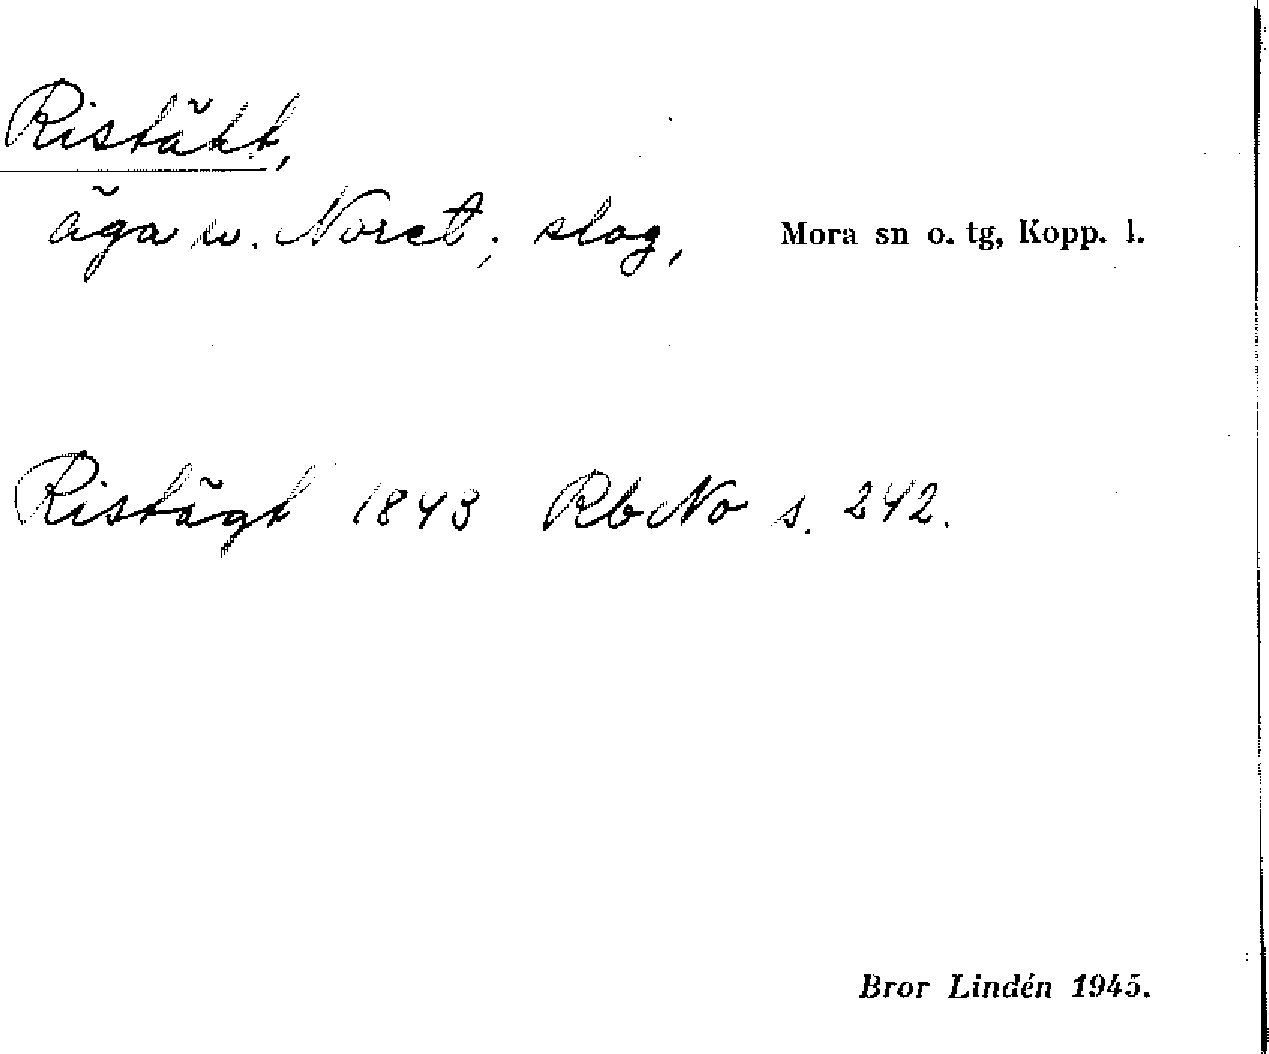 Ristäkt,
äga u. Noret; slog, Mora sn o. tg, Kopp. l.
Ristägt 1843 RbNo s. 242.
Bror Lindén 1945.